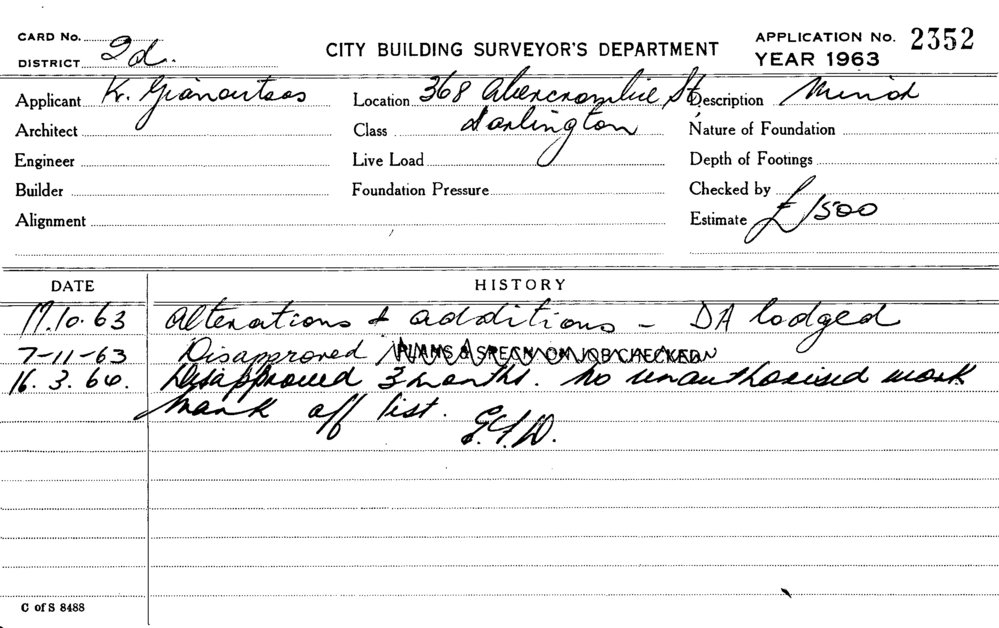 CARD No. 2d.
DISTRICT
CITY BUILDING SURVEYOR'S DEPARTMENT
APPLICATION No. 2352
YEAR 1963
Applicant K. Gianoutsos Location 368 Abercrombie St Description Minor
Architect Class Darlington Nature of Foundation
Engineer Live Load Depth of Footings
Builder Foundation Pressure Checked by
Alignment Estimate £1500
DATE HISTORY
17.10.63 Alterations & additions - DA lodged
7-11-63 Disapproved PLANS & SPECN ON JOB CHECKED
16.3.64. Disapproved 3 months. No unauthorised work
Mark off list. 
C of S 8488